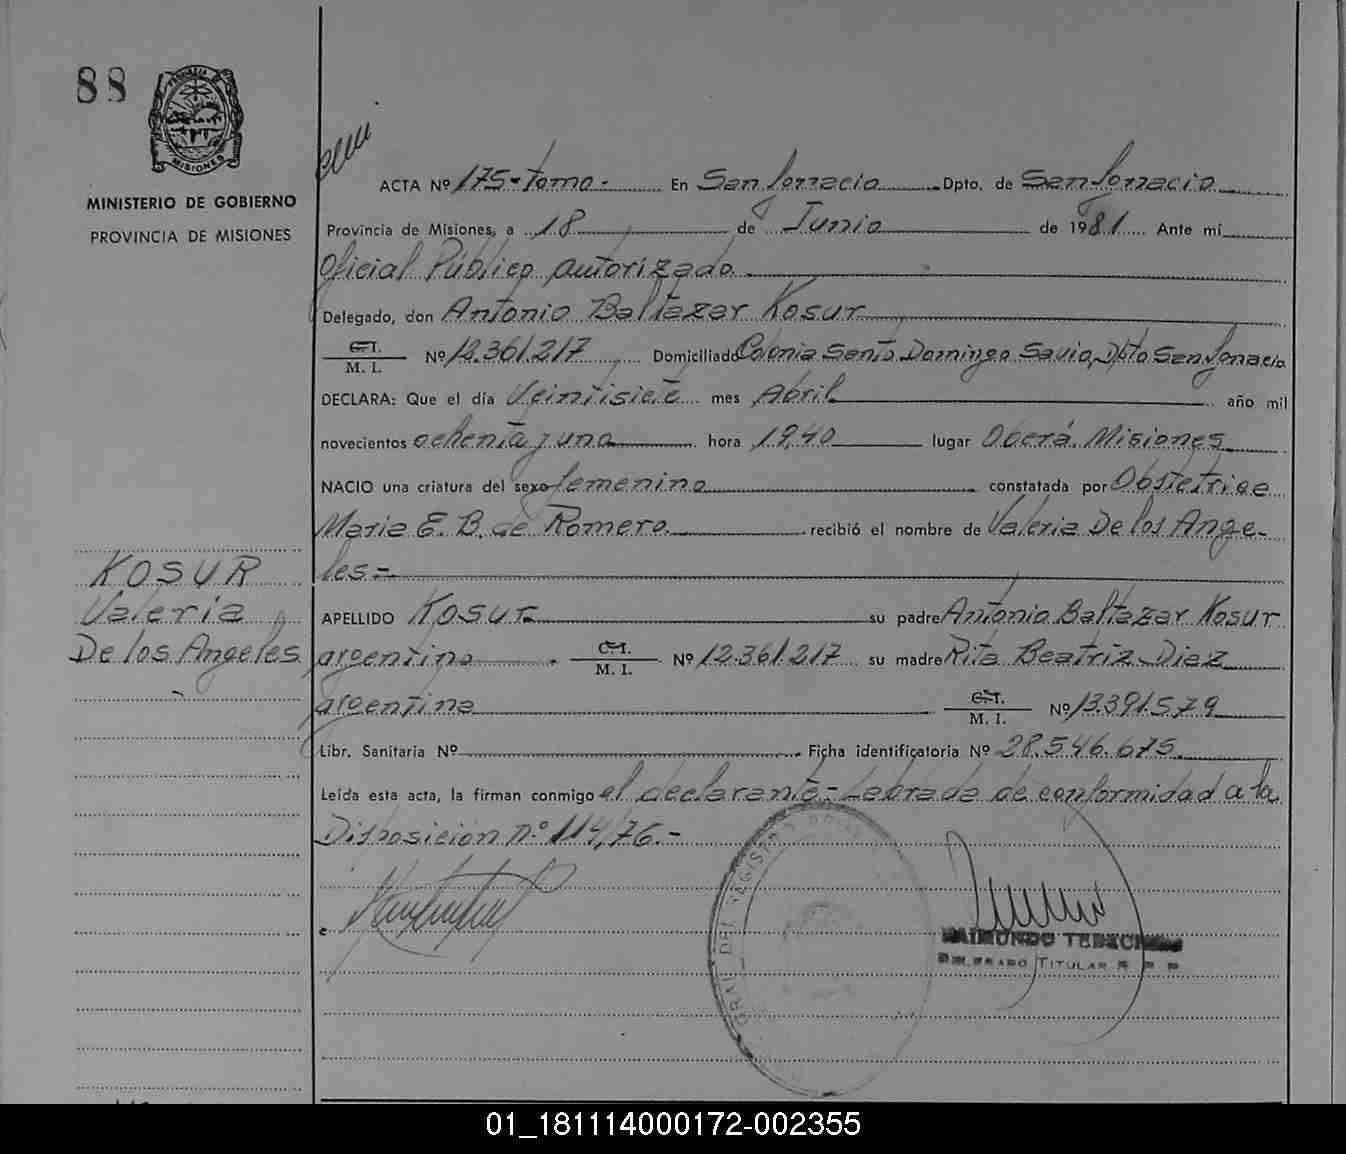 88
MISIONES
MINISTERIO DE GOBIERNO
PROVINCIA DE MISIONES
KOSUR
Valeria
De los Angeles
ACTA Nº 175-Tomo- En San Ignacio Dpto. de San Ignacio
Provincia de Misiones, a 18 de Junio de 1981 Ante mi
Oficial Público autorizado
Delegado, don Antonio Baltazar Kosur
C.I.
M. I. Nº 12.361.217 Domiciliado Colonia Santo Domingo Savio, Dpto San Ignacio
DECLARA: Que el día Veintisiete mes Abril año mil
novecientos ochenta y uno hora 19,40 lugar Oberá. Misiones
NACIO una criatura del sexo femenino constatada por Obstetrice
Maria E. B. de Romero recibió el nombre de Valeria De los Ange-
les=
APELLIDO Kosur su padre Antonio Baltazar Kosur
argentino C.I.
M. I. Nº 12.361.217 su madre Rita Beatriz Diaz
argentina C.I.
M. I. Nº 13.391.579
Libr. Sanitaria Nº Ficha identificatoria Nº 28.546.675
Leída esta acta, la firman conmigo el declarante - Labrada de conformidad a la
Disposición nº 114/76.-
GRAL. DEL REGISTRO
RAIMUNDO
DELEGADO TITULAR
01_181114000172-002355